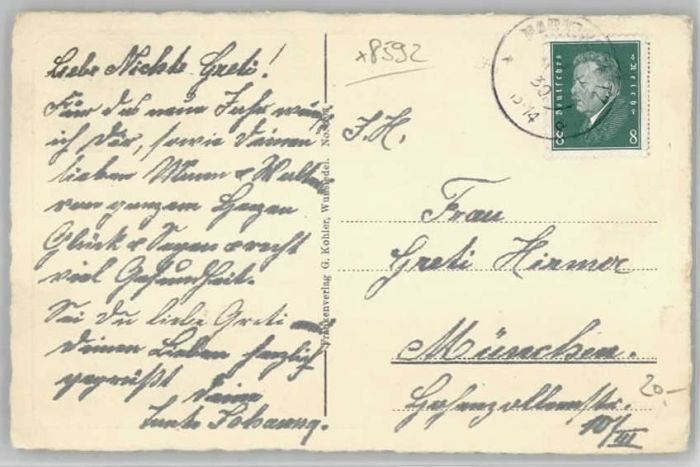 Liebe Nichte Greti!
Für das neue Jahr wünsch
ich Dir, sowie Deinem
lieben Mann & Walter
von ganzem Herzen
Glück & Segen & recht
viel Gesundheit.
Sei Du liebe Greti
Deinen Lieben herzlich
gegrüßt Deine
Tante Johanna.
Frankenverlag G. Kohler, Wunsiedel. No.
x8592
MARK
30
13-14
Deutsches Reich
8 8
I. H.
Frau
Greti Hirmer
München.
Hohenzollernstr.
10/III
20-